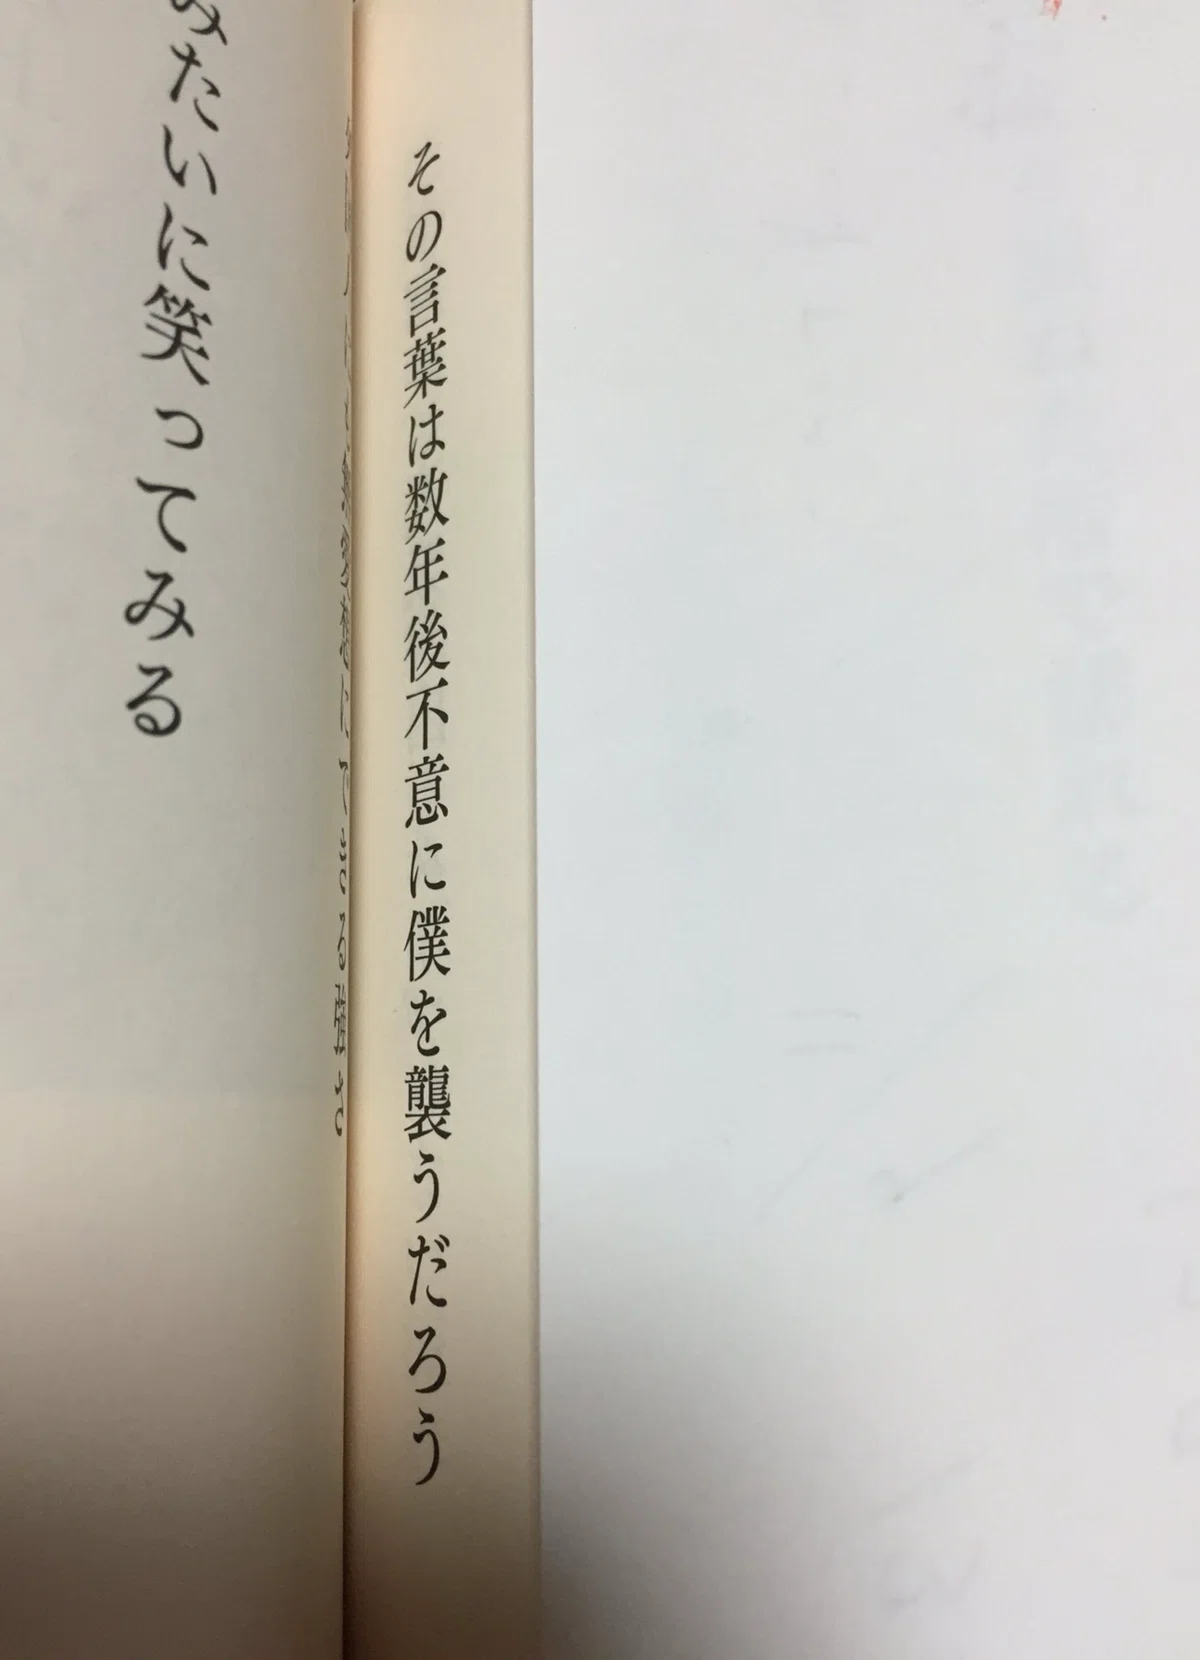 その言葉は数年後不意に僕を襲うだろう
にできる強さ
みたいに笑ってみる